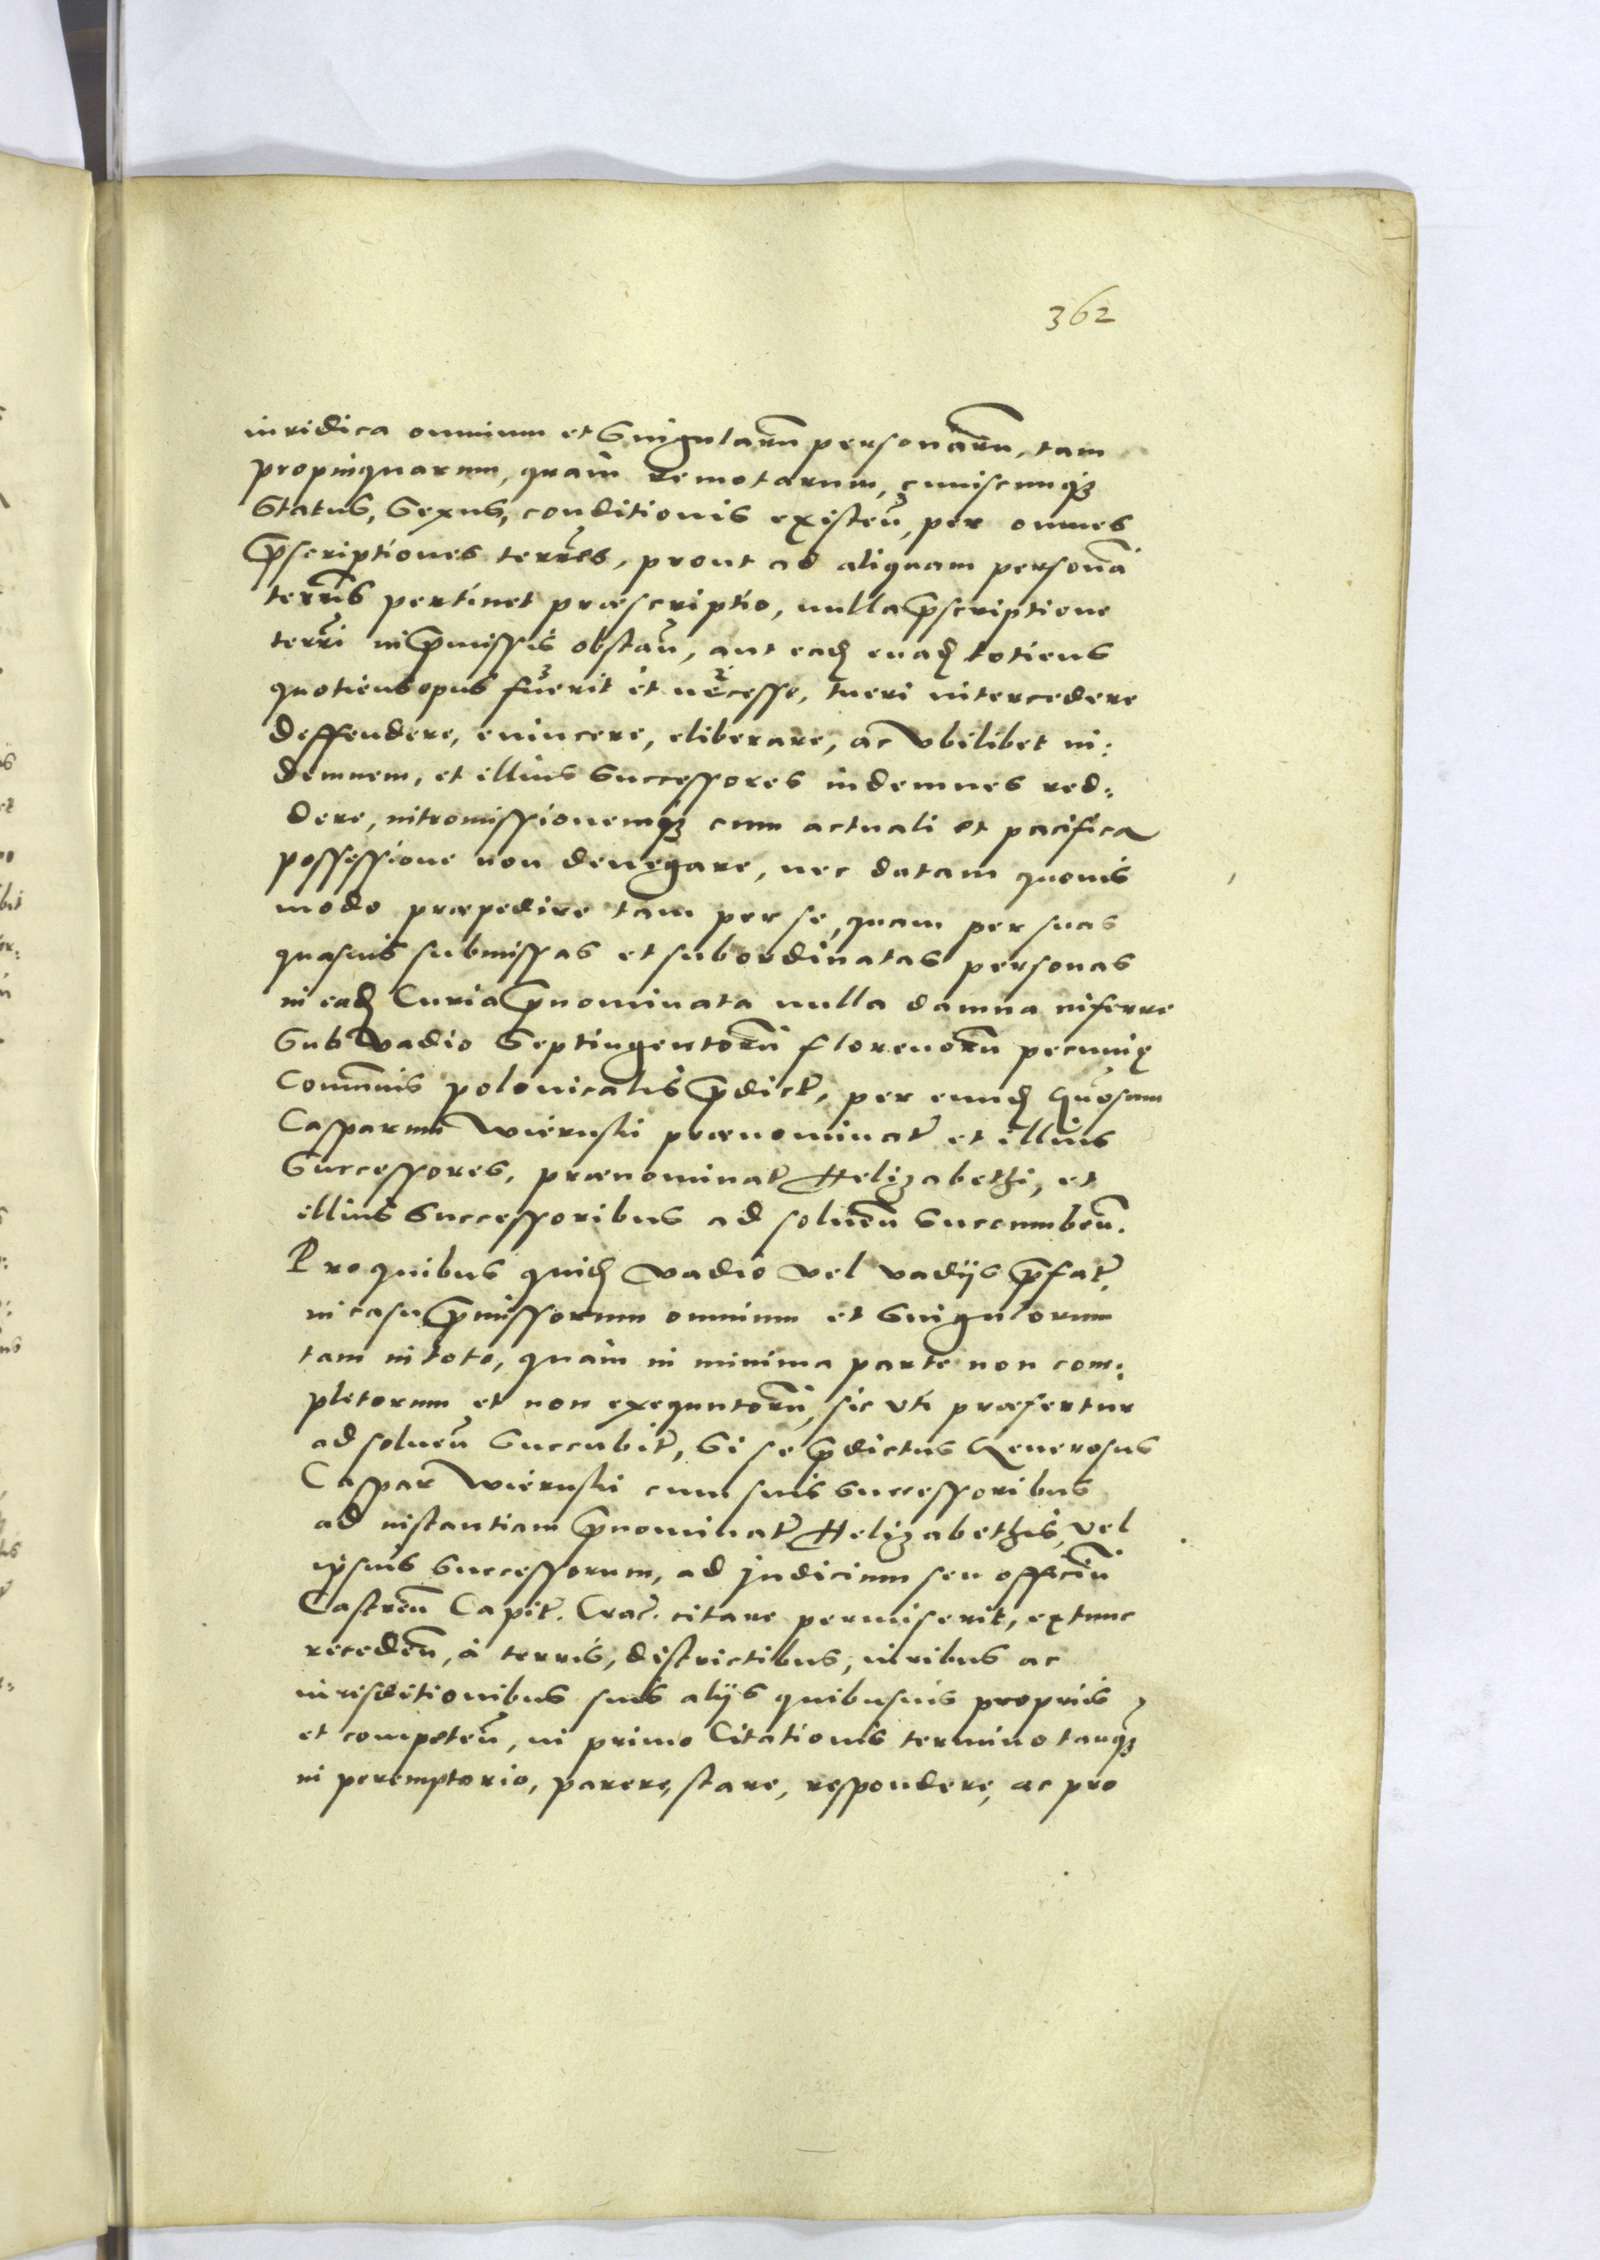 362
iuridica omnium et Singularu͂ personaru͂, tam
propinquarum, quàm remotarum, cuiuscunqꝫ
Status, Sexus, conditionis existen͂, per omnes
p͂scriptiones terr͂es, prout ad aliquam personã
terr͂is pertinet præscriptio, nulla p͂scriptione
terr͂i in p͂missis obstan͂, aut ead͂ euad͂ totiens
quotiens opus fuerit et necesse, tueri intercedere
deffendere, euincere, eliberare, ac vbilibet in:
demnem, et illius Successores indemnes red:
dere, intromissionemqꝫ cum actuali et pacifica
possessione non denegare, nec datam quouis
modo præpedire tam per se, quam per suas
quasuis submissas et subordinatas personas
in ead͂ Curia p͂nominata nulla damna inferre
Sub vadio Septingentoru͂ florenoru͂ pecunię
Com͂unis polonicalis p͂dict͂, per eund͂ Gn͂osum
Casparum Wiernski prænominat͂ et illius
Successores, prænominat͂ Helizabethi, et
illius Successoribus ad soluen͂ Succumben͂.
Pro quibus quid͂ vadio vel vadijs p͂fat͂,
in casu p͂missorum omnium et Singulorum
tam in toto, quàm in minima parte non com:
pletorum et non exequutoru͂, sic vti præfertur
ad soluen͂ Succubit͂, Si se p͂dictus Generosus
Caspar Wiernski cum suis Successoribus
ad instantiam p͂nominat͂ Helizabethis, vel
ipsius Successorum, ad judicium seu officiu͂
Castren͂ Capit͂. Crac͂. citare permiserit, extunc
receden͂, à terris, districtibus, iuribus ac
iurisditionibus suis alijs quibusuis proprijs
et competen͂, in primo Citationis termino tanqꝫ
in peremptorio, parere, stare, respondere, ac pro